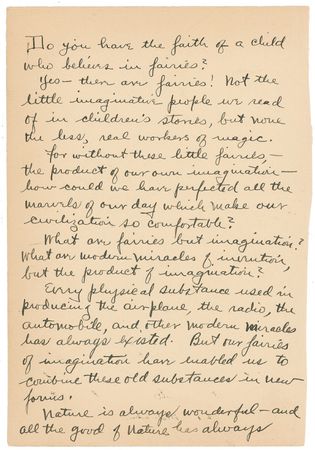 Do you have the faith of a child
who believes in fairies?
Yes — there are fairies! Not the
little imaginative people we read
of in children's stories, but none
the less, real workers of magic.
For without these little fairies, —
the product of our own imagination —
how could we have perfected all the
marvels of our day which make our
civilization so comfortable?
What are fairies but imagination?
What are modern miracles of invention,
but the product of imagination?
Every physical substance used in
producing the airplane, the radio, the
automobile, and other modern miracles
has always existed. But our fairies
of imagination have enabled us to
combine these old substances in new
forms.
Nature is always wonderful — and
all the good of Nature has always